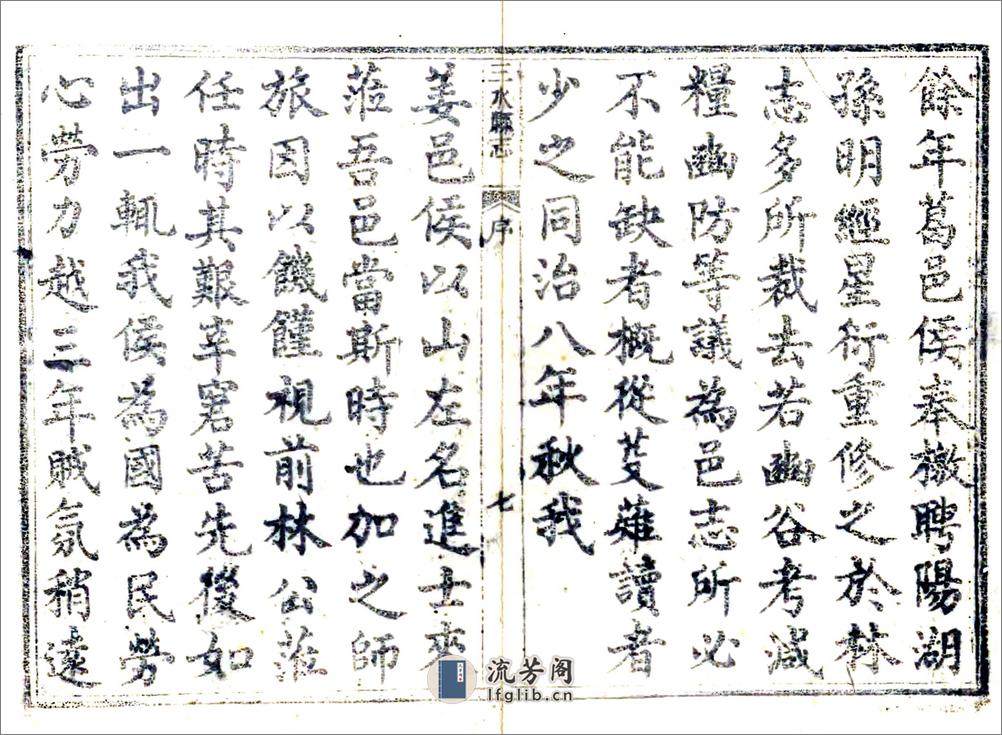 餘年葛邑侯奉檄聘陽湖
孫明經星衍重修之於林
志多所裁去若豳谷考減
糧豳防等議為邑志所必
不能缺者概從芟薙讀者
少之同治八年秋我
三水縣志
序
七
姜邑侯以山左名進士來
蒞吾邑當斯時也加之師
旅因以饑饉視前林公蒞
任時其艱辛窘苦先後如
出一輒我侯為國為民勞
心勞力越三年賊氛稍遠
流芳阁
lfglib.cn